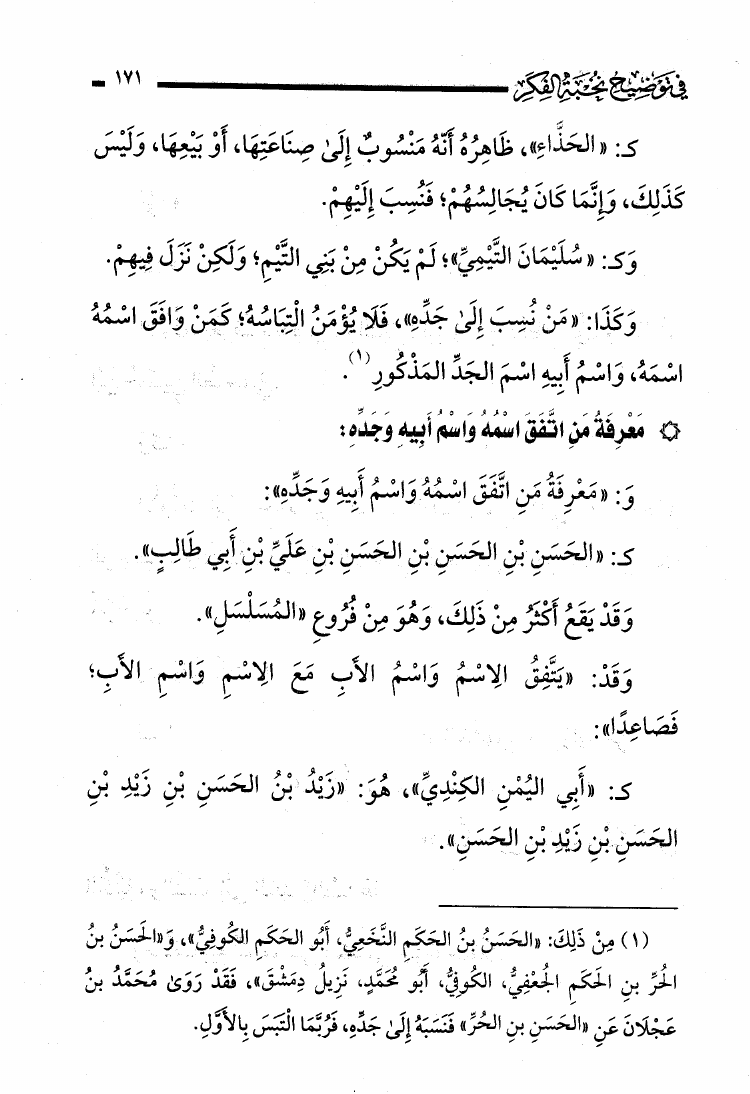 في توضيح نخبة الفكر ١٧١
كـ: «الحَذَّاءِ»، ظَاهِرُهُ أَنَّهُ مَنْسُوبٌ إِلَىٰ صِنَاعَتِهَا، أَوْ بَيْعِهَا، وَلَيْسَ
كَذَلِكَ، وَإِنَّمَا كَانَ يُجَالِسُهُمْ؛ فَنُسِبَ إِلَيْهِمْ.
وَكـ: «سُلَيْمَانَ التَّيْمِيِّ»؛ لَمْ يَكُنْ مِنْ بَنِي التَّيْمِ؛ وَلَكِنْ نَزَلَ فِيهِمْ.
وَكَذَا: «مَنْ نُسِبَ إِلَىٰ جَدِّهِ»، فَلَا يُؤْمَنُ الْتِبَاسُهُ؛ كَمَنْ وَافَقَ اسْمُهُ
اسْمَهُ، وَاسْمُ أَبِيهِ اسْمَ الجَدِّ المَذْكُورِ(١).
مَعْرِفَةُ مَنِ اتَّفَقَ اسْمُهُ وَاسْمُ أَبِيهِ وَجَدِّهِ:
وَ: «مَعْرِفَةُ مَنِ اتَّفَقَ اسْمُهُ وَاسْمُ أَبِيهِ وَجَدِّهِ»:
كـ: «الحَسَنِ بْنِ الحَسَنِ بْنِ الحَسَنِ بْنِ عَلَيِّ بْنِ أَبِي طَالِبٍ».
وَقَدْ يَقَعُ أَكْثَرُ مِنْ ذَلِكَ، وَهُوَ مِنْ فُرُوعِ «المُسَلْسَلِ».
وَقَدْ: «يَتَّفِقُ الِاسْمُ وَاسْمُ الأَبِ مَعَ الِاسْمِ وَاسْمِ الأَبِ؛
فَصَاعِدًا»:
كـ: «أَبِي اليُمْنِ الكِنْدِيِّ»، هُوَ: «زَيْدُ بْنُ الحَسَنِ بْنِ زَيْدِ بْنِ
الحَسَنِ بْنِ زَيْدِ بْنِ الحَسَنِ».
(١) مِنْ ذَلِكَ: «الحَسَنُ بْنُ الحَكَمِ النَّخَعِيُّ، أَبُو الحَكَمِ الكُوفِيُّ»، وَ«الحَسَنُ بنُ
الحُرِّ بنِ الحَكَمِ الجُعْفِيُّ، الكُوفِيُّ، أَبُو مُحَمَّدٍ، نَزِيلُ دِمَشْقَ»، فَقَدْ رَوَىٰ مُحَمَّدُ بنُ
عَجْلَانَ عَنِ «الحَسَنِ بنِ الحُرِّ» فَنَسَبَهُ إِلَىٰ جَدِّهِ، فَرُبَّمَا الْتَبَسَ بِالأَوَّلِ.